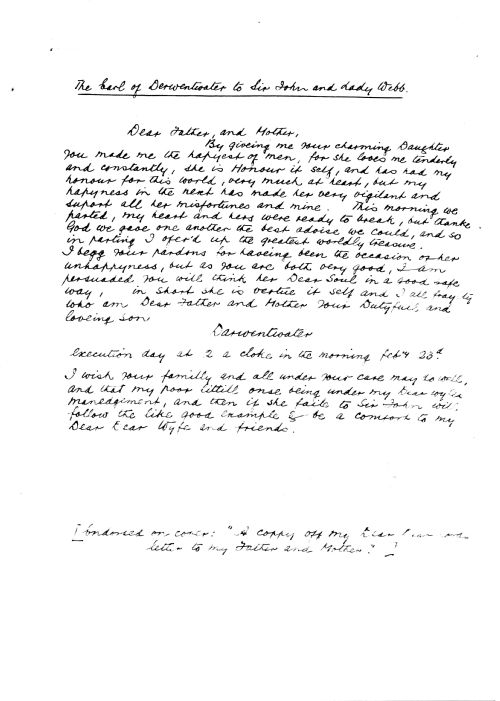 The Earl of Derwentwater to Sir John and Lady Webb.
Dear Father, and Mother,
By giveing me your charming Daughter
you made me the hapyest of men, for she loves me tenderly
and constantly, she is Honour it self, and has had my
honour for this world, very much at heart, but my
hapyness in the next has made her very vigilant and
suport all her misfortunes and mine. This morning we
parted, my heart and hers were ready to break, but thanke
God we gave one another the best advise we could, and so
in parting I ofer'd up the greatest worldly treasure.
I begg your pardons for haveing been the occasion of her
unhappyness, but as you are both very good, I am
persuaded you will think her Dear Soul in a good safe
way, in short she is vertue it self and I all
who am Dear Father and Mother your Dutyfull and
loveing son
Darwentwater
execution day at 2 a cloke in the morning feb 23d
I wish your familly and all under your care may do well,
and that my poor littill onse being under my Dear wyfes
manedgement, and then if she fails to Sir John will
follow the like good example & be a comfort to my
Dear Dear Wyfe and friends.
[Endorsed on cover: "A coppy off my Dear
letter to my Father and Mother."]